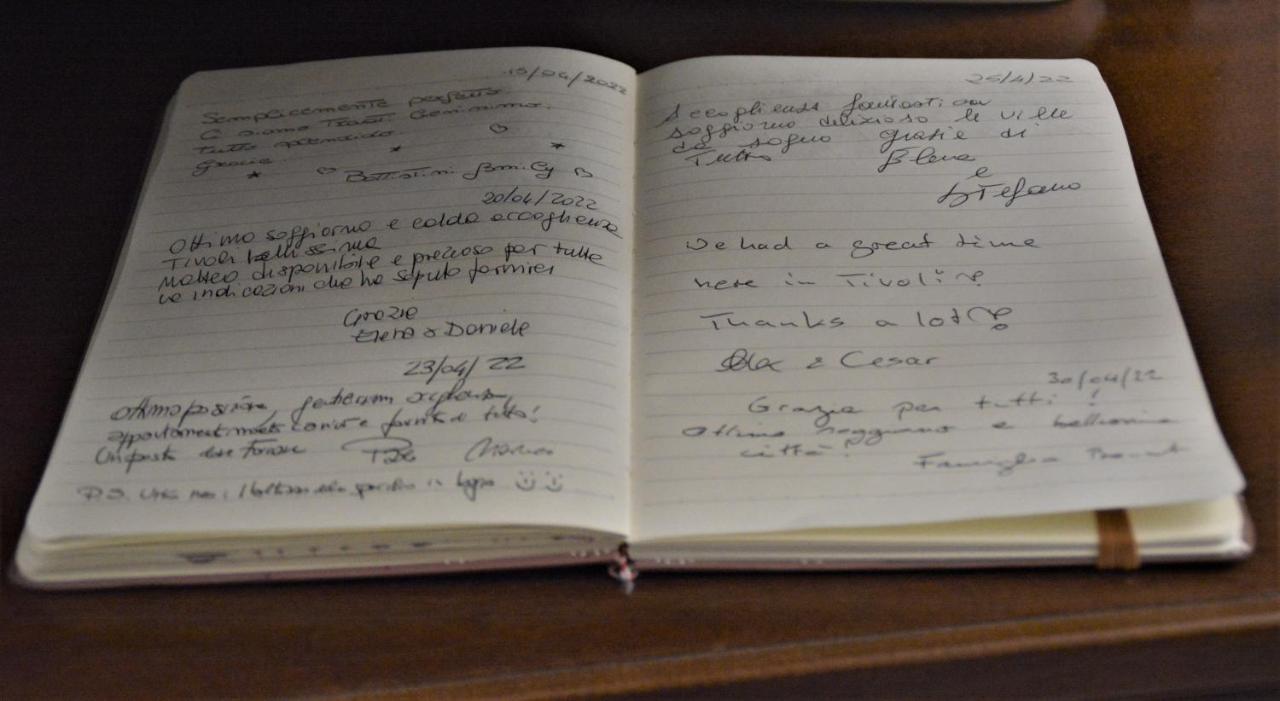 15/04/2022
Semplicemente perfetto
Ci siamo trovati benissimo.
tutto splendido
Grazie
Battistini family
20/04/2022
Ottimo soggiorno e calda accoglienza
Tivoli bellissima
Matteo disponibile e prezioso per tutte
le indicazioni che ha saputo fornirci
Grazie
Elena & Daniele
23/04/22
Ottima posizione,
appartamento e fornito di tutto!
P.S.
25/4/22
Accoglienza fantastica
soggiorno delizioso le ville
da sogno grazie di
Tutto Elena
e
Stefano
We had a great time
here in Tivoli!
Thanks a lot!
& Cesar
30/04/22
Grazie per tutti!
Ottimo soggiorno e bellissima
città!
Famiglia